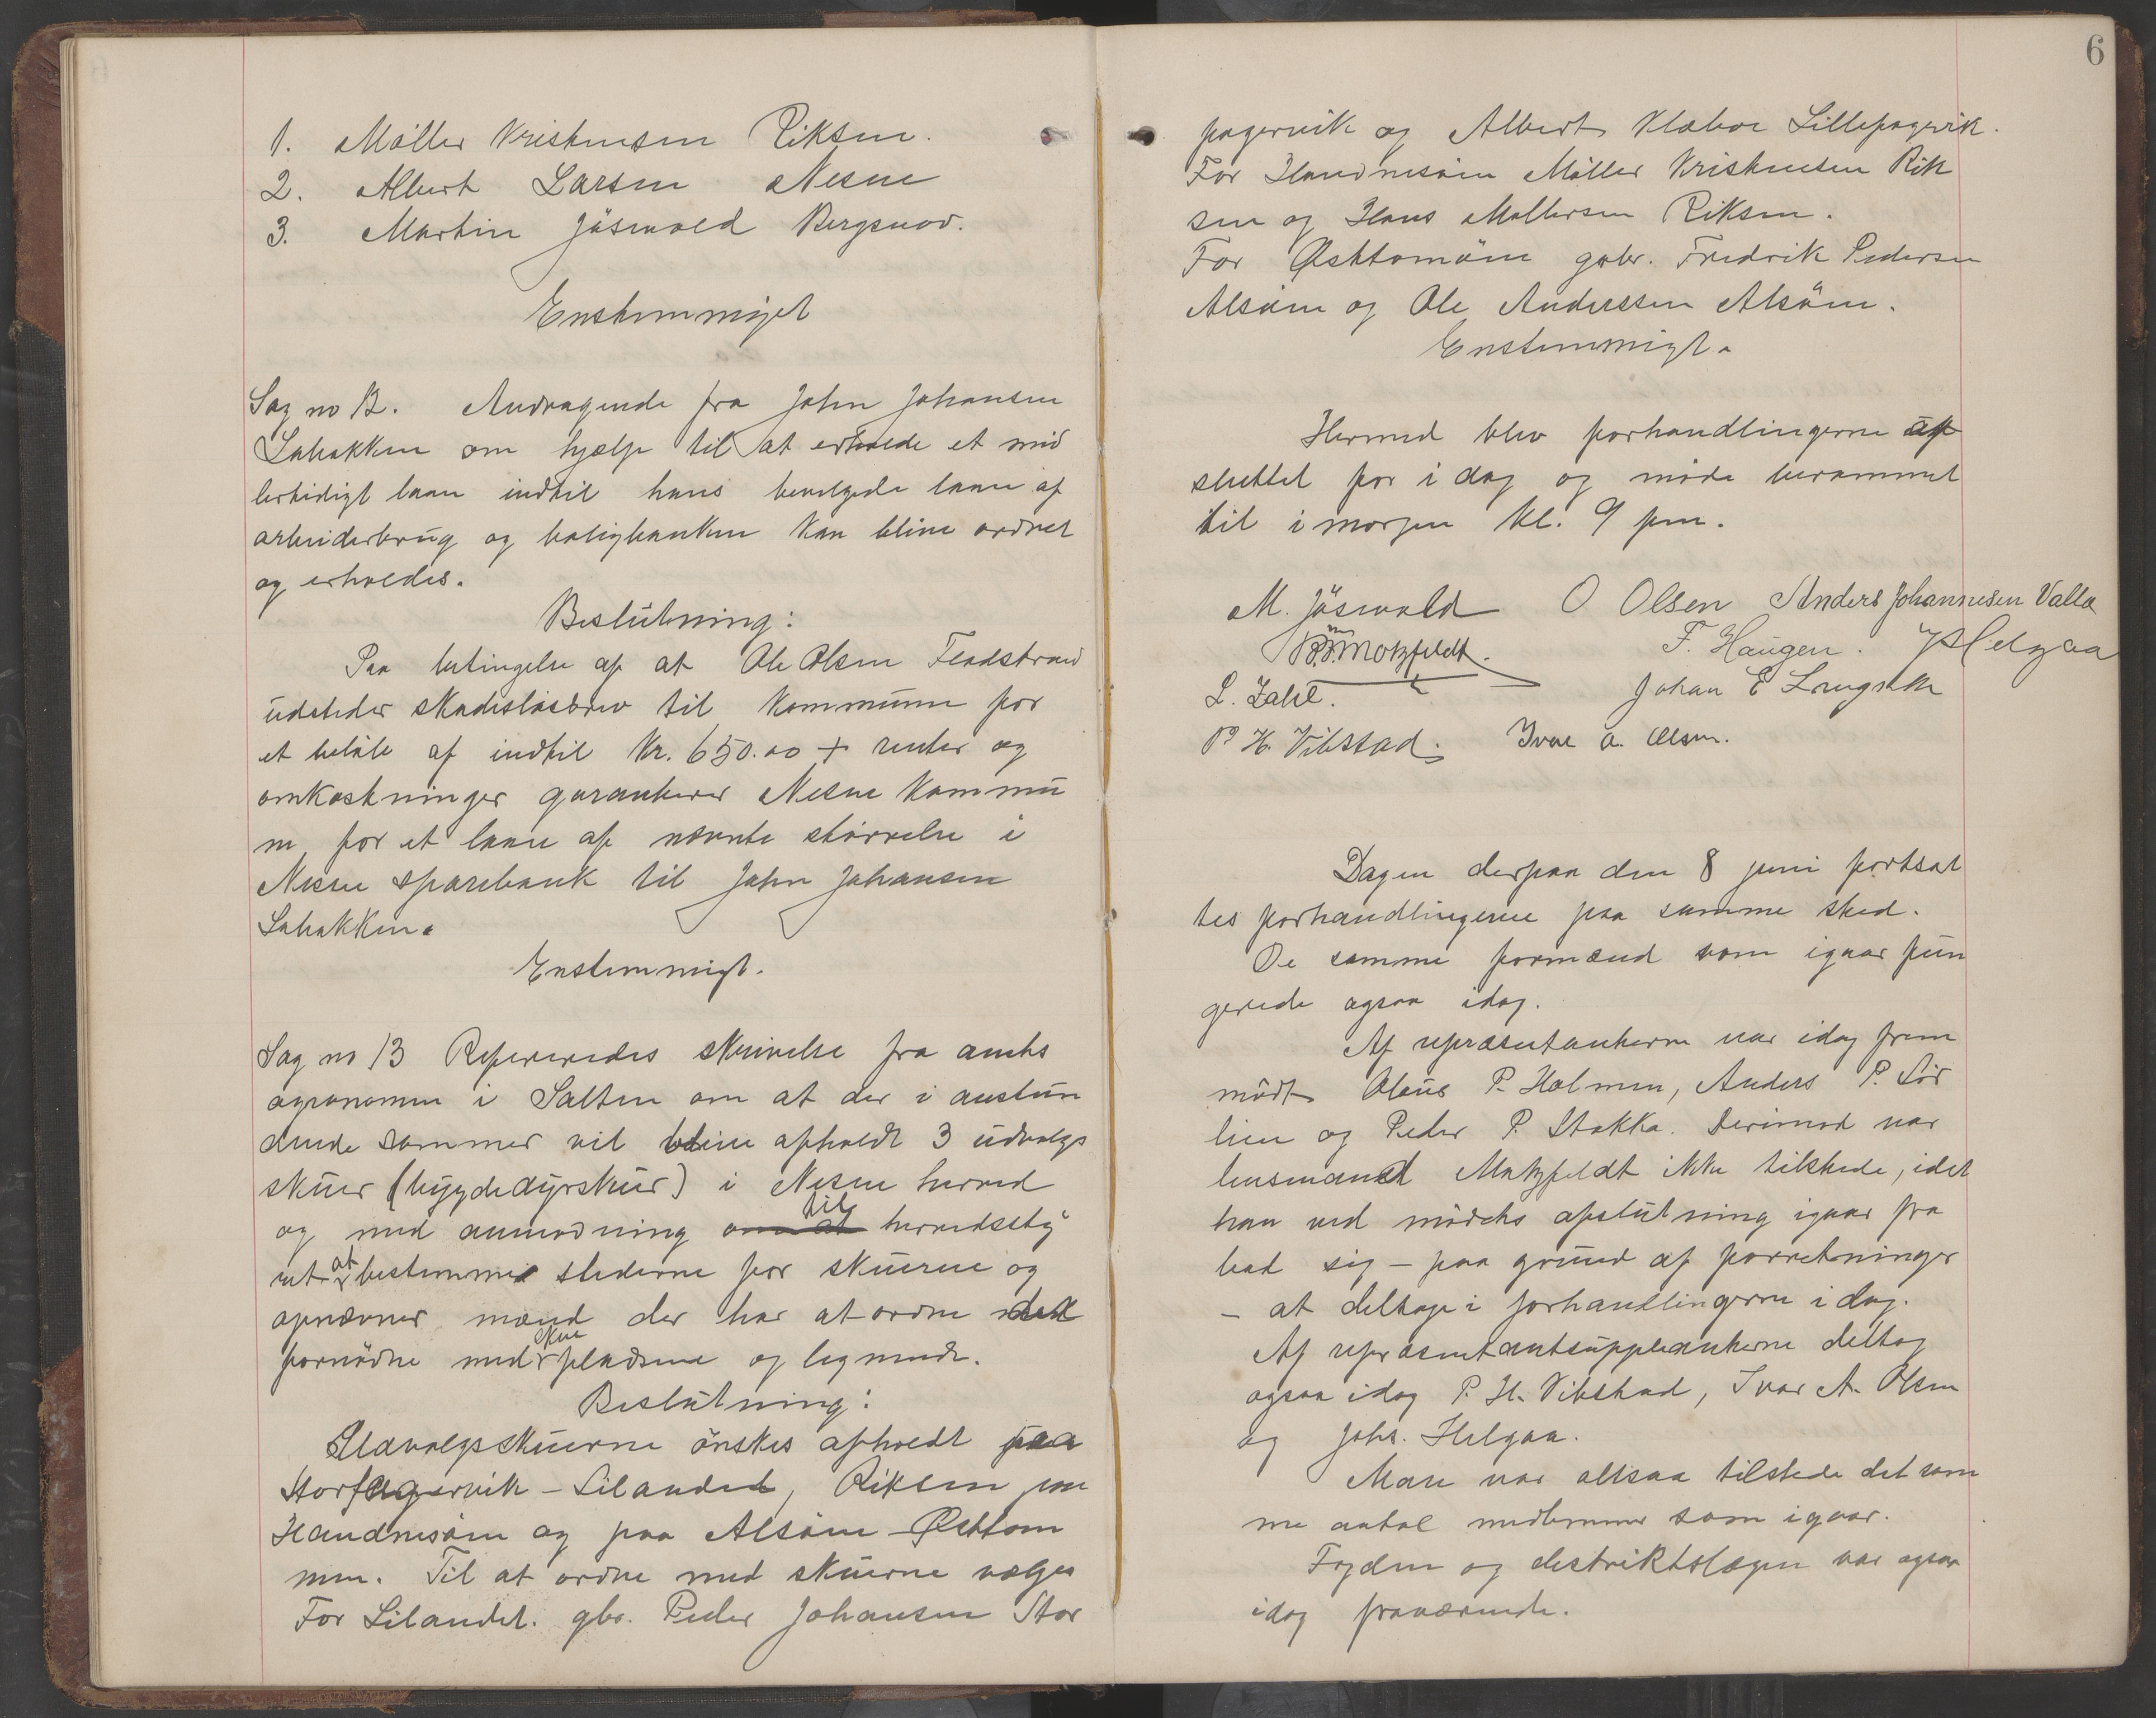 1. Møller Kristensen Riksen.
2. Albert Larsen Nesne
3. Martin Jøsevold Bergsnov.
Enstemmiget
Sag no 12. Andragende fra John Johansen
Labakken om hjælp til at erholde et mid
lertidigt laan indtil hans bevilgede laan af
arbeiderbrug og boligbanken kan blive ordnet
og erholdes.
Beslutning:
Paa betingelse af at Ole Olsen Fladstrand
udsteder skadesløsbrev til kommunen for
et beløb af indtil Kr. 650.00 + renter og
omkostninger garanterer Nesne kommu
ne for et laan af nævnte størrelse i
Nesne sparebank til John Johansen
Labakken.
Enstemmigt.
Sag no 13 Refereredes skrivelse fra amts
agronomen i Salten om at der i anstun
dende sommer vil blive afholdt 3 udvalgs
skuer (bygdedyrskuer) i Nesne herred
og med anmodning om at til herredssty
ret at bestemme stederne for skuerne og
opnævner mænd der har at ordne det
fornødne med skuepladsene og lignende.
Beslutning:
Udvalgsskuerne ønskes afholdt paa
Storfagervik - Lilandet, Riksen paa
Handnesøen og paa Alsøen - Østtom
men. Til at ordne med skuerne vælges
For Lilandet. gbr. Peder Johansen Stor
6
fagervik og Albert Klæboe Lillefagervik.
For Handnesøen Møller Kristensen Rik
sen og Hans Møllersen Riksen.
For Østtomøen gabr. Fredrik Pedersen
Alsøen og Ole Anderssen Alsøen.
Enstemmigt.
Hermed blev forhandlingerne af
sluttet for i dag og møde berammet
til i morgen kl. 9 fm.
M. Jøsevold O Olsen Anders Johannesen Valla
Motzfeldt. F. Haugen. Helgaa
L. Zahl. Johan E
P. H. Vibstad. Ivar A. Olsen.
Dagen derpaa den 8 juni fortsat
tes forhandlingerne paa samme sted.
De samme formænd som igaar fun
gerede ogsaa idag.
Af repræsentanterne var idag frem
mødt Olaus P. Holmen, Anders P. Sør
lien og Peder P. Stokka. Derimod var
lensmand Motzfeldt ikke tilstede, idet
han ved mødets afslutning igaar fra
bad sig - paa grund af forretninger
- at deltage i forhandlingerne i dag.
Af repræsentantsuppleanterne deltog
ogsaa idag P. H. Vibstad, Ivar A. Olsen
og Johs. Helgaa.
Man var altsaa tilstede det sam
me antal medlemmer som igaar.
Fogden og distriktslægen var ogsaa
idag fraværende.